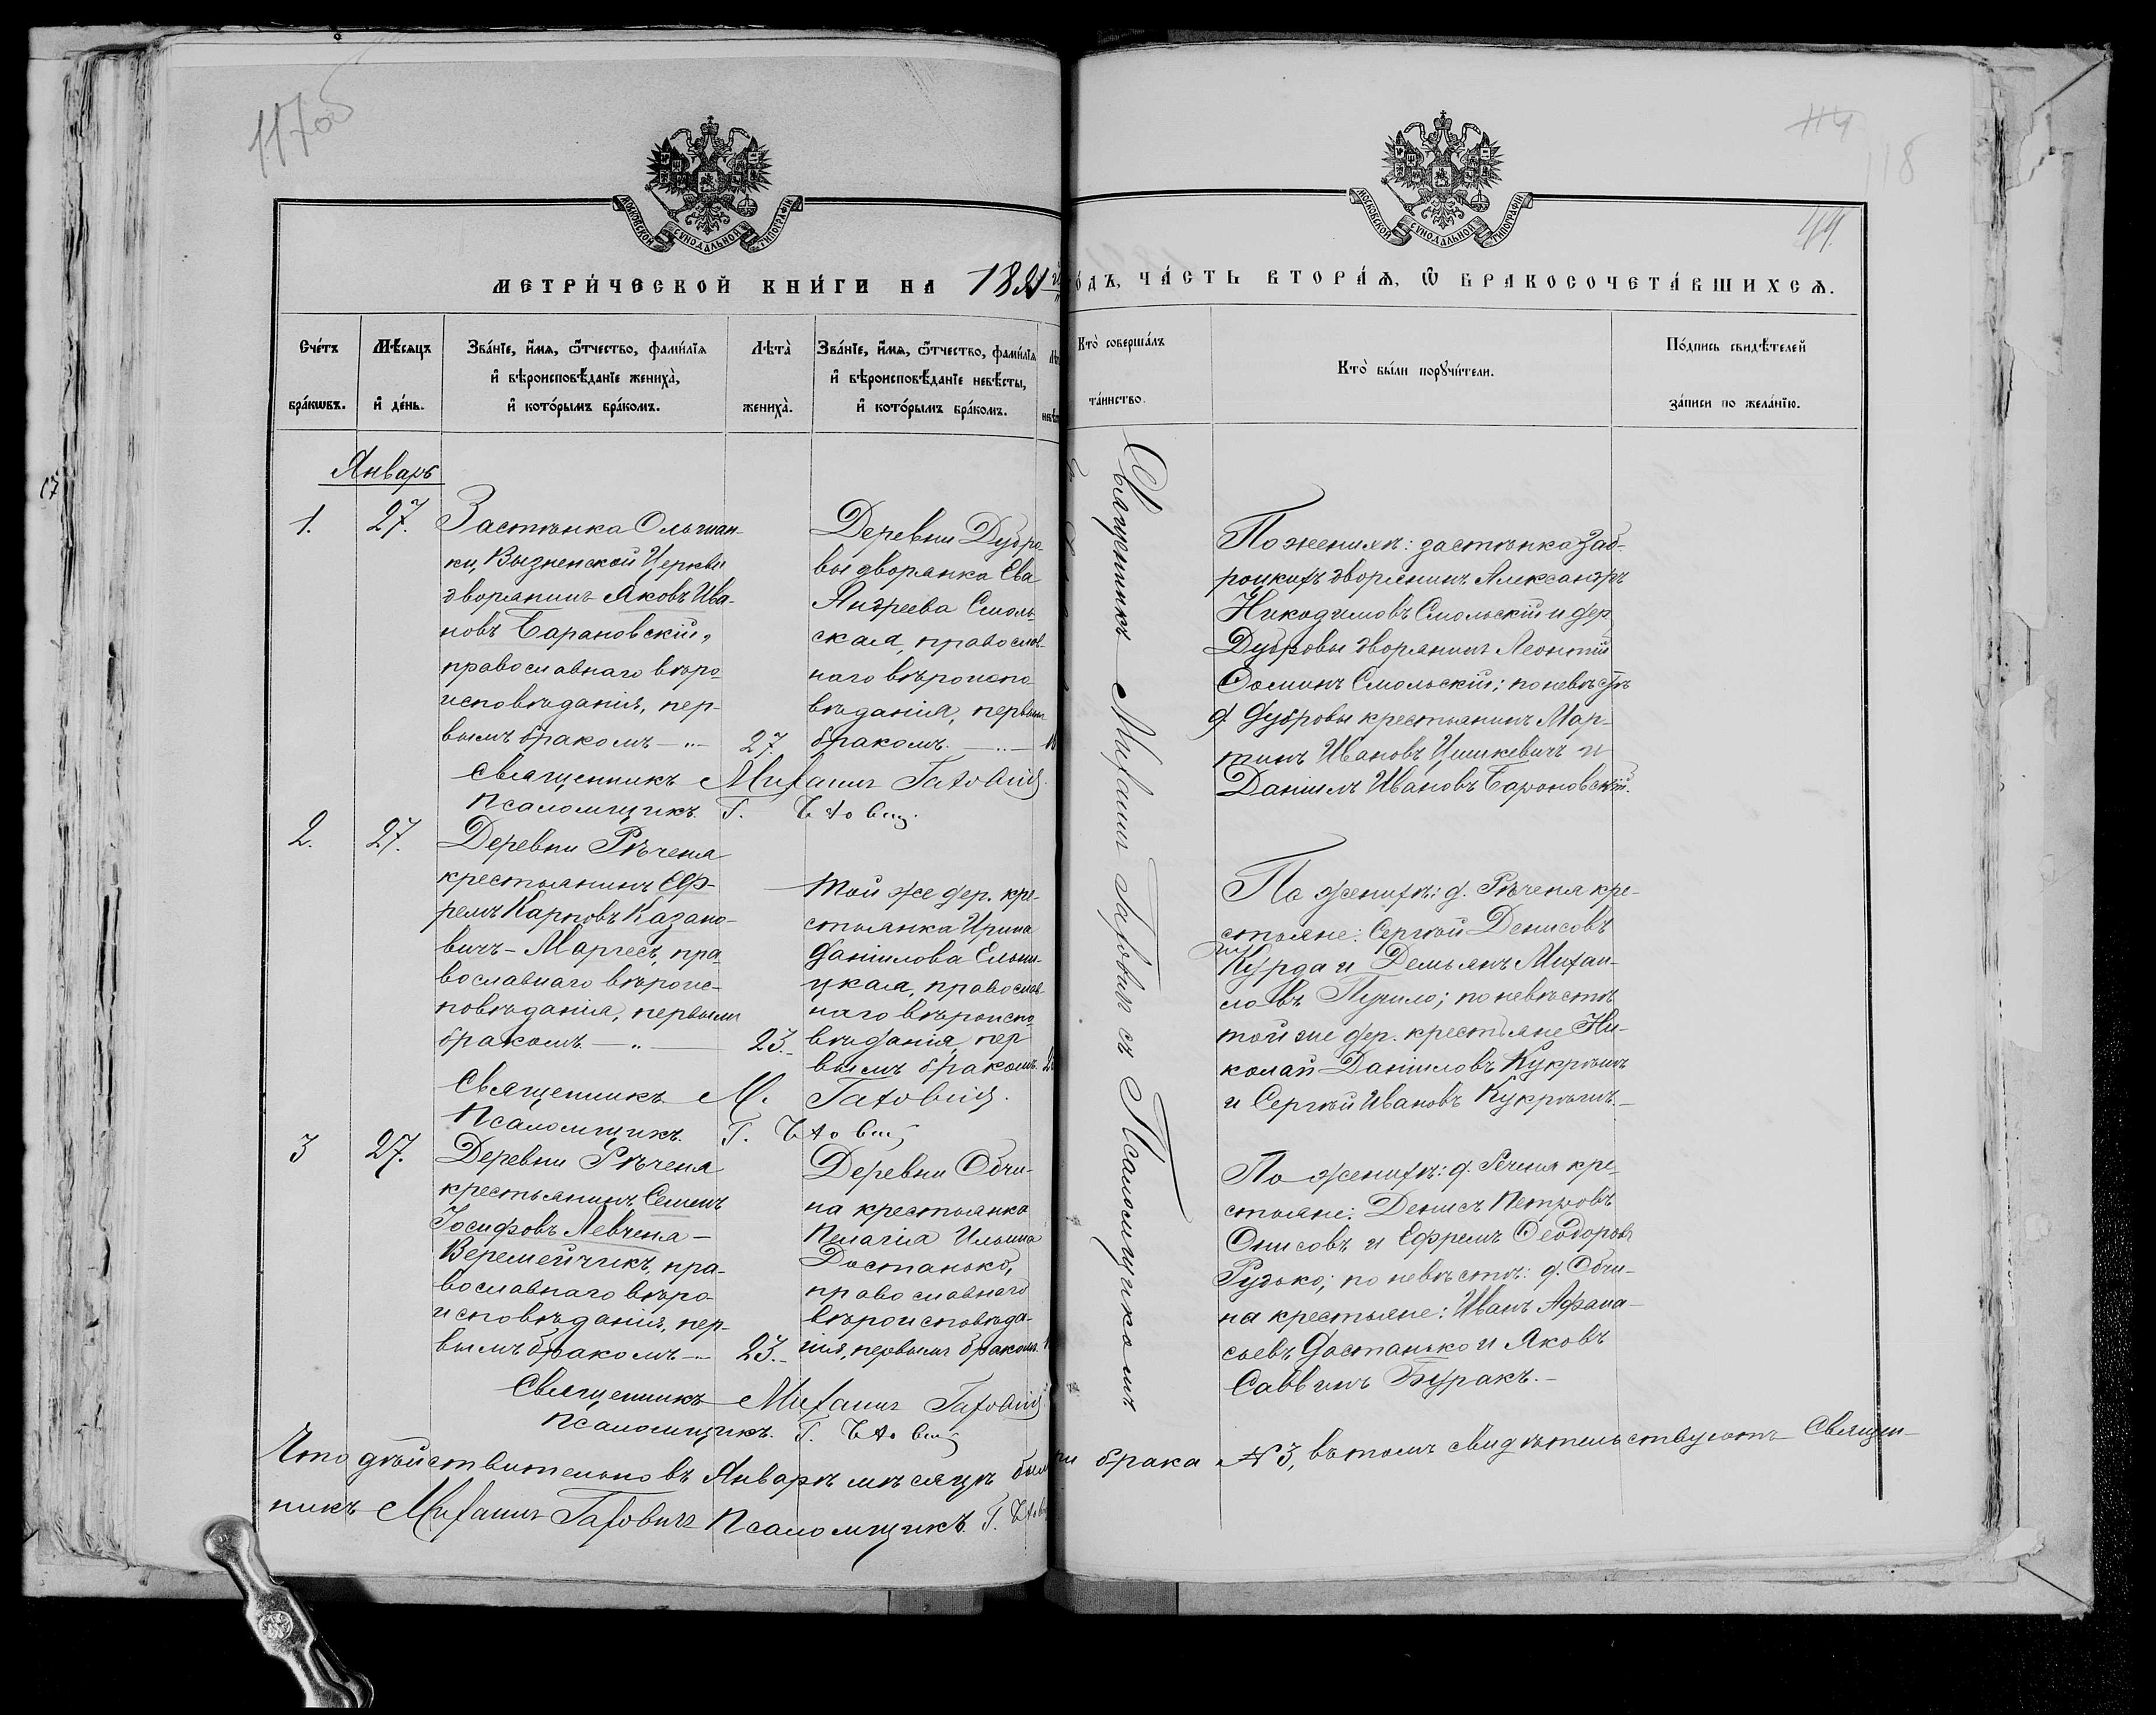 117об
118
МОСКОВСКОЙ СУНОДАЛЬНОЙ ТИПОГРАФІИ
МОСКОВСКОЙ СУНОДАЛЬНОЙ ТИПОГРАФІИ
МЕТРИ́ЧЕСКОЙ КНИ́ГИ НА 18
ЧА́СТЬ ВТОРА́Я, Ѽ БРАКОСОЧЕТА́ВШИХСЯ.
Сче́тъ бра́кѡвъ.
Мѣ́сяцъ и҆ де́нь.
Зва́нїе, и҆́мя, ѻ҆́тчество, фами́лїя
и҆ вѣроисповѣ́данїе жениха̀,
и҆ кото́рымъ бра́комъ.
Лѣта̀ жениха̀.
Зва́нїе, и҆́мя, ѻ҆́тчество, фами́лїя
и҆ вѣроисповѣ́данїе невѣ́сты,
и҆ кото́рымъ бра́комъ.
Кто̀ соверша́лъ
та́инство.
Кто̀ бы́ли порꙋчи́тели.
По́дпись свидѣ́телей
за́писи по жела́нїю.
Январь
1.
27.
Застѣнка Ольшан-
ки, Вызненской Церкви
дворянинъ Яковъ Ива-
новъ Барановскій,
православнаго вѣро
исповѣданія, пер-
вымъ бракомъ —"—
27.
Деревни Дубро-
вы дворянка Ева
Андреева Смоль-
ская, православ-
наго вѣроиспо
вѣданія, первым
бракомъ. —"—
По женихѣ: застѣнка Заб-
роцкихъ дворянинъ Александръ
Никодимовъ Смольскій и дер.
Дубровы дворянинъ Леонтій
Ѳоминъ Смольскій; по невѣстѣ
д. Дубровы крестьянинъ Мар-
тинъ Ивановъ Цишкевичъ и
Даніилъ Ивановъ Барановскій.
Священникъ Михаилъ Гахович
Псаломщикъ Г.
Священникъ Михаилъ Гаховичъ съ Псаломщикомъ
2.
27.
Деревни Рѣченя
крестьянинъ Еф-
ремъ Карповъ Казано-
вичъ-Маргесъ, пра-
вославнаго вѣроис-
повѣданія, первымъ
бракомъ. —"—
23.
Той же дер. кре-
стьянка Ирина
Даніилова Ельни-
цкая, православ-
наго вѣроиспо
вѣданія, пер
вымъ бракомъ.
По женихѣ: д. Рѣченя кре-
стьяне: Сергѣй Денисовъ
и Демьянъ Михаи-
ловъ Пучило; по невѣстѣ
той же дер. крестьяне Ни-
колай Даніиловъ Кукрѣшъ
и Сергѣй Ивановъ Кукрѣшъ.—
Священникъ М. Гахович.
Псаломщикъ. Г.
3
27.
Деревни Рѣченя
крестьянинъ Семенъ
Іосифовъ Левченя-
Веремейчикъ, пра-
вославнаго вѣро
исповѣданія, пер-
вымъ бракомъ —"—
23.
Деревни Обчи-
на крестьянка
Пелагія Ильина
Достанько,
православнаго
вѣроисповѣда-
нія, первымъ бракомъ.
По женихѣ: д. Реченя кре-
стьяне: Денисъ Петровъ
Онисовъ и Ефремъ Ѳеодоровъ
Рудько; по невѣстѣ: д. Обчи-
на крестьяне: Иванъ Афана-
сьевъ Достанько и Яковъ
Саввинъ Буракъ.—
Священникъ Михаилъ Гахович
Псаломщикъ. Г.
Что дѣйствительно въ Январѣ мѣсяцѣ брака № 3, въ томъ свидѣтельствуютъ Священ-
никъ Михаилъ Гаховичъ Псаломщикъ. Г.